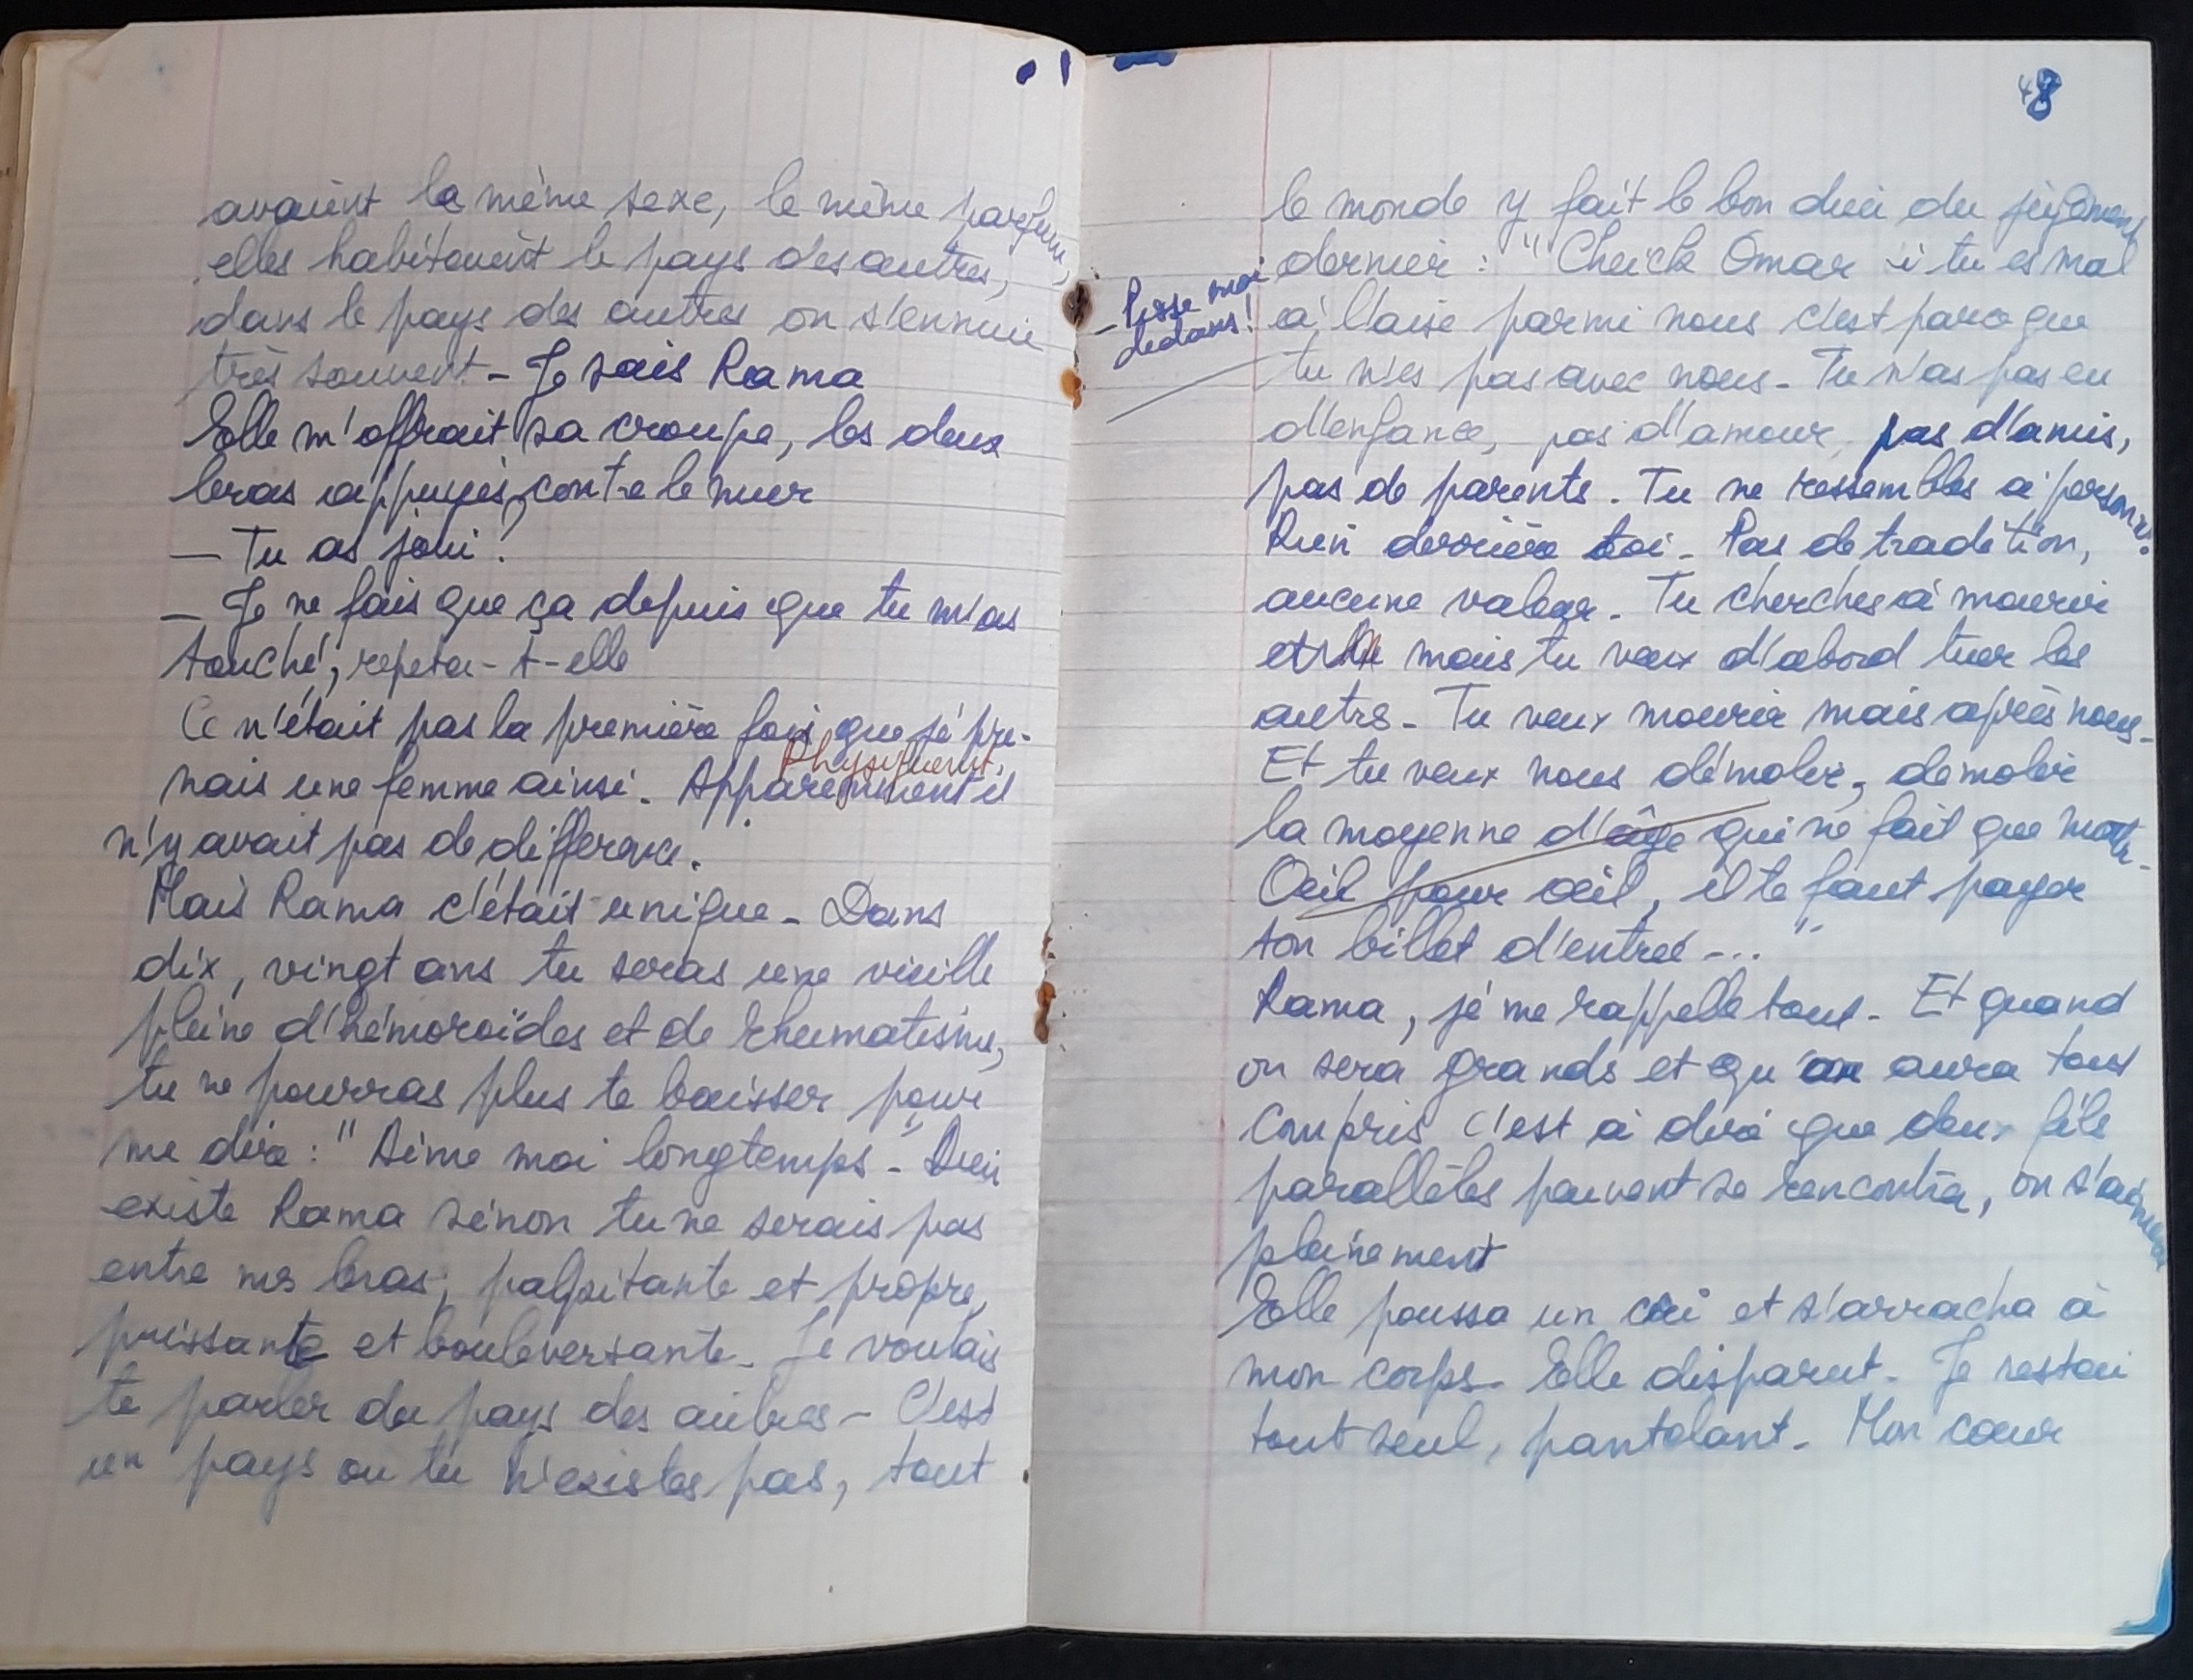 avaient le même sexe, le même parfum,
elles habitaient le pays des autres,
dans le pays des autres on s'ennuie
très souvent - Je sais Rama
Elle m'offrait sa croupe, les deux
bras appuyés contre le mur
— Tu as joui ?
— Je ne fais que ça depuis que tu m'as
touché, repeta-t-elle
Ce n'était pas la première fois que je pre-
Physiquement,
nais une femme ainsi. Apparemment il
n'y avait pas de difference.
Mais Rama c'était unique - Dans
dix, vingt ans tu seras une vieille
pleine d'hémoroïdes et de rhumatisme,
tu ne pourras plus te baisser pour
me dire : "Aime moi longtemps" - Dieu
existe Rama sinon tu ne serais pas
entre mes bras, palpitante et propre,
puissante et bouleversante - Je voulais
te parler du pays des autres - C'est
un pays ou tu n'existes pas, tout
48
le monde y fait le bon dieu du jugement
dernier : "Cheick Omar si tu es mal
- Pisse moi
dedans !
à l'aise parmi nous c'est parce que
tu n'es pas avec nous - Tu n'as pas eu
d'enfance, pas d'amour, pas d'amis,
pas de parents. Tu ne ressembles à personne.
Rien derrière toi - Pas de tradition,
aucune valeur. Tu cherches à mourir
et mais tu veux d'abord tuer les
autres - Tu veux mourir mais après nous -
Et tu veux nous démolir, demolir
la moyenne d'âge qui ne fait que
Oeil pour œil, il te faut payer
ton billet d'entrée -..."
Rama, je me rappelle tout - Et quand
on sera grands et qu'on aura tout
compris c'est à dire que deux fils
parallèles peuvent se rencontrer, on s'aimera
pleinement
Elle poussa un cri et s'arracha à
mon corps - Elle disparut - Je restai
tout seul, pantelant - Mon cœur